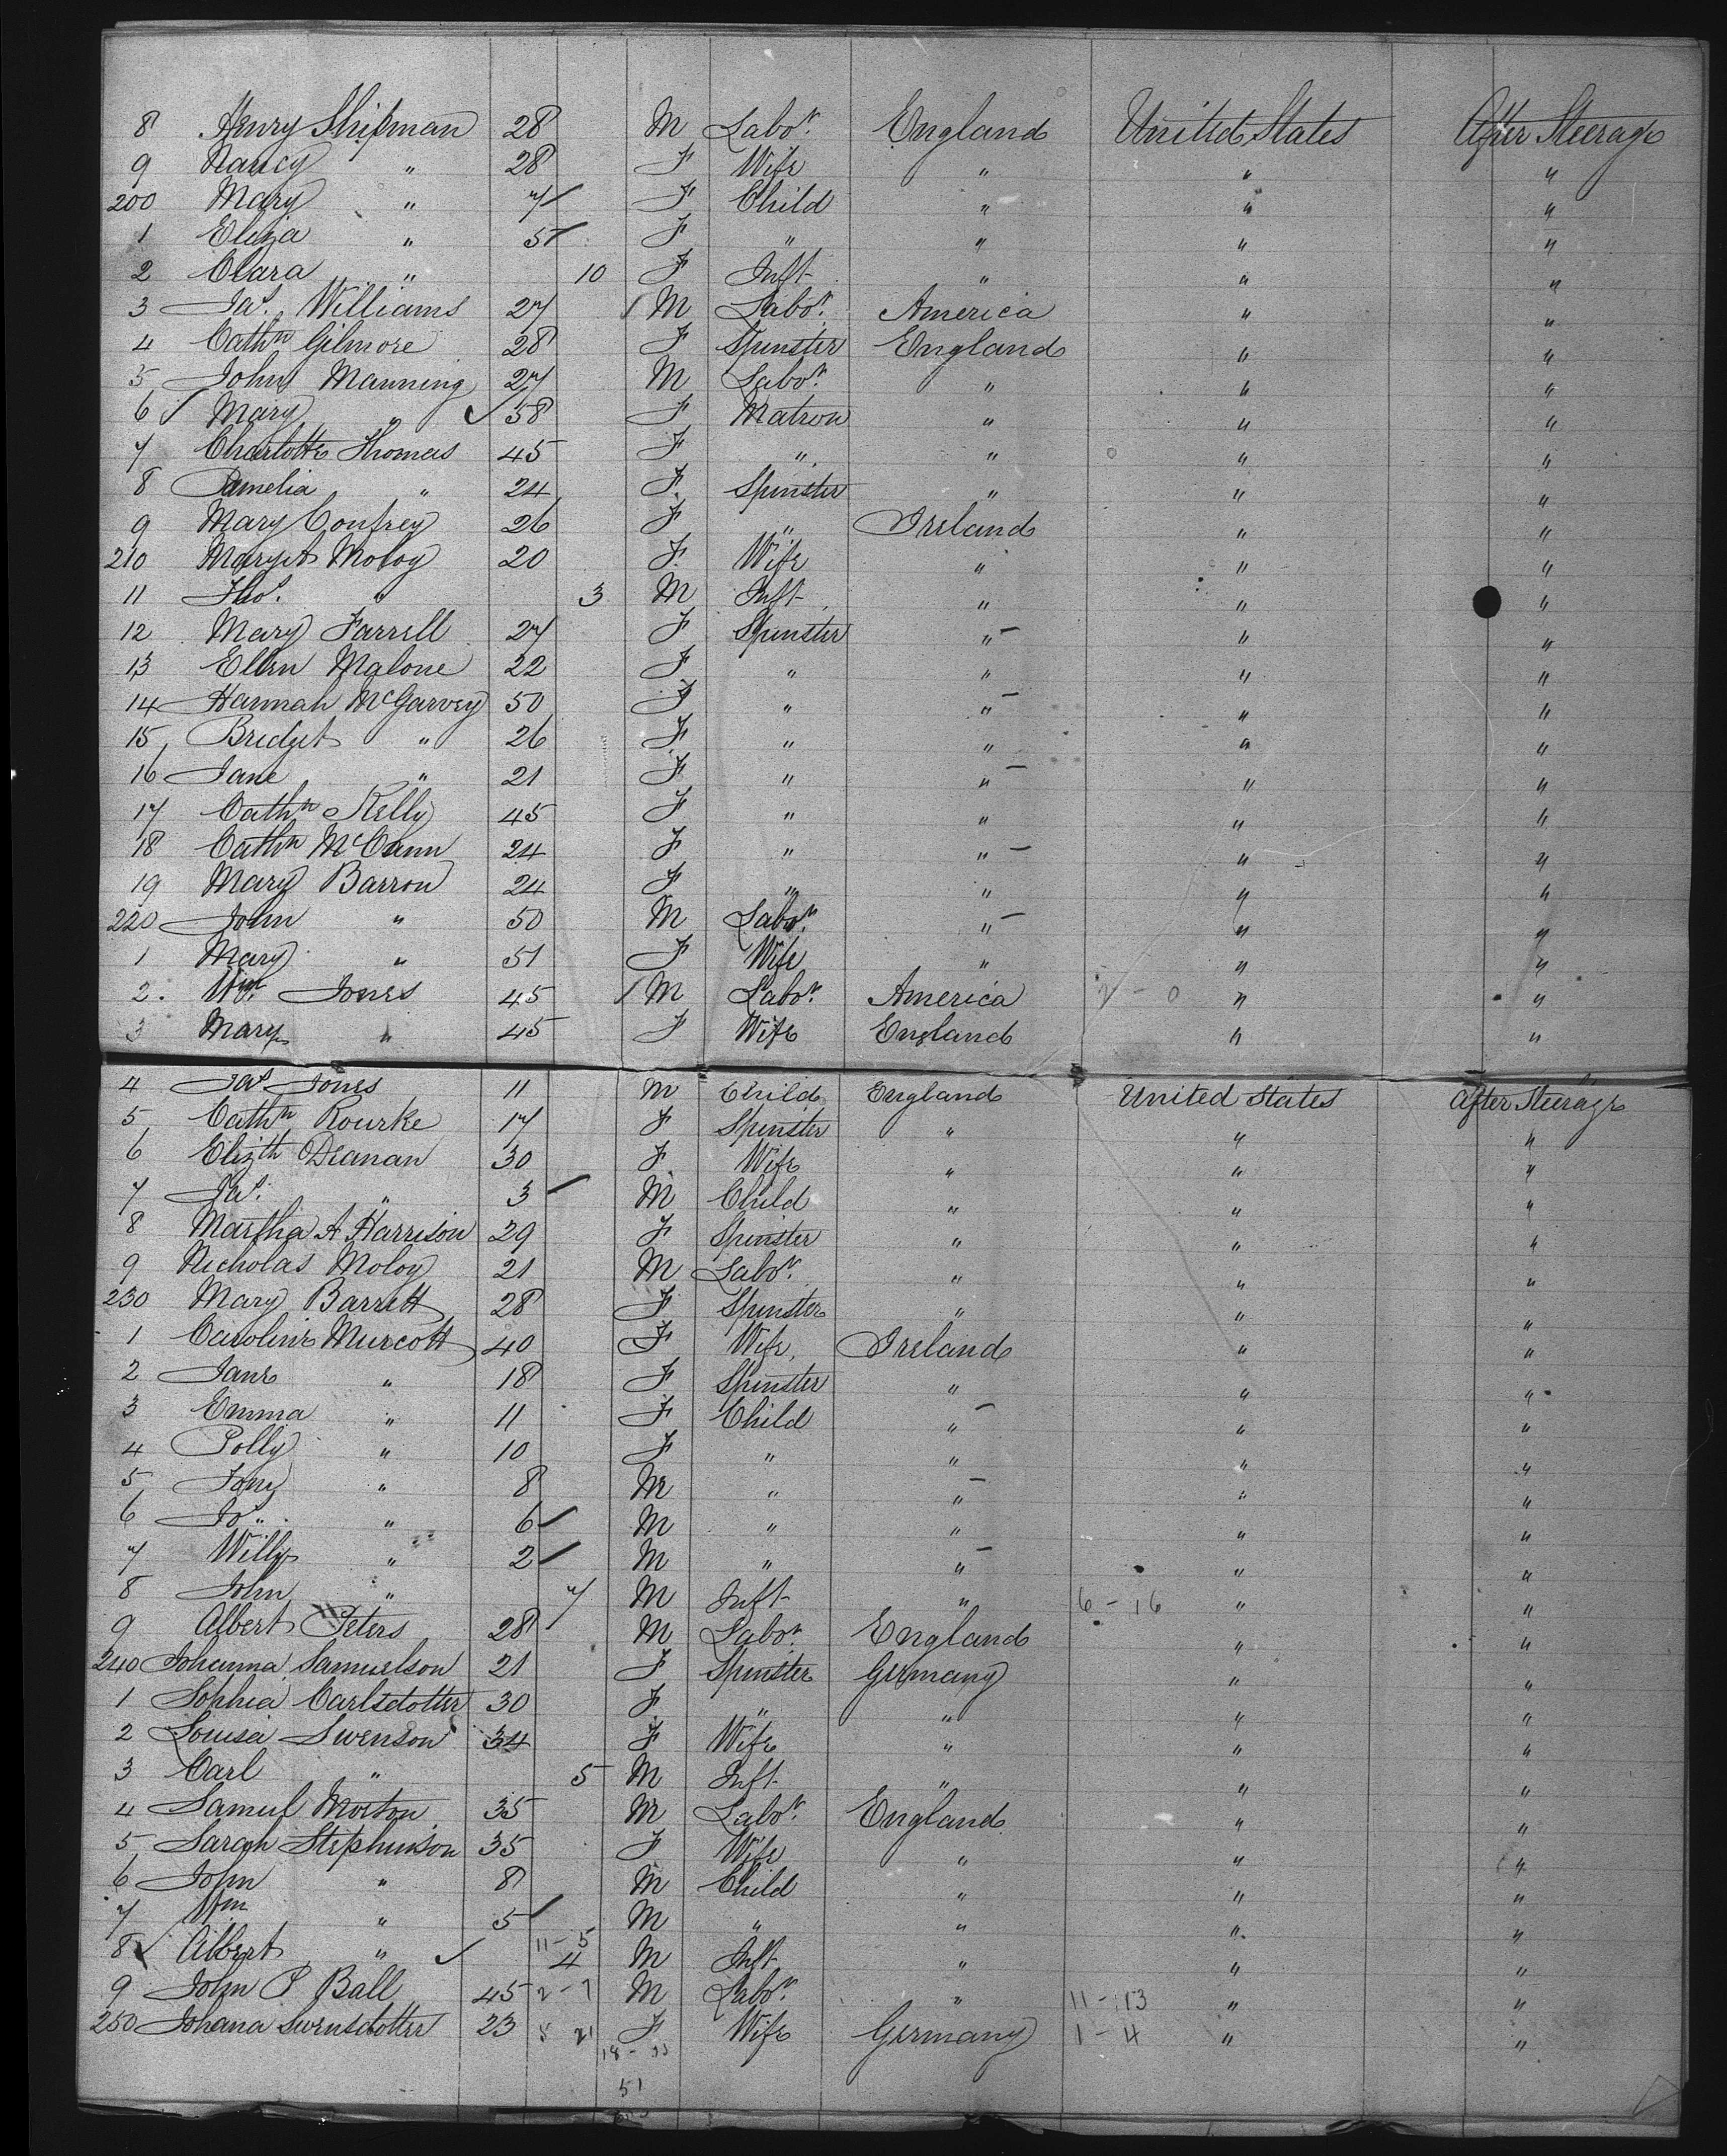 8 Henry Shipman 28 M Labor. England United States After Steerage
9 Nancy " 28 F Wife " " "
200 Mary " 7 F Child " " "
1 Eliza " 5 F " " " "
2 Clara " 10 F Inft " " "
3 Jas. Williams 27 M Labor. America " "
4 Cathn Gilmore 28 F Spinster England " "
5 John Manning 27 M Labor. " " "
6 Mary " 58 F Matron " " "
7 Charlotte Thomas 45 F " " " "
8 Pamelia " 24 F. Spinster " " "
9 Mary Confrey 26 F " Ireland " "
210 Maryet Moloy 20 F. Wife " " "
11 Tho. " 3 M Inft " " "
12 Mary Farrell 27 F Spinster " " "
13 Ellen Malone 22 F " " " "
14 Hannah McGarvey 50 F " " " "
15 Bridget " 26 F " " " "
16 Jane " 21 F " " " "
17 Cathn Kelly 45 F " " " "
18 Cathn McCann 24 F " " " "
19 Mary Barron 24 F " " " "
220 John " 50 M Labor. " " "
1 Mary " 51 F Wife " " "
2. Wm. Jones 45 M Labor. America " "
3 Mary " 45 F Wife England " "
4 Jas Jones 11 M Child England United States After Steerage
5 Cathn Rourke 17 F Spinster " " "
6 Elizth Deanan 30 F. Wife " " "
7 Jas. " 3 M Child " " "
8 Martha A Harrison 29 F Spinster " " "
9 Nicholas Moloy 21 M Labor. " " "
230 Mary Barrett 28 F Spinster " " "
1 Caroline Murcott 40 F Wife Ireland " "
2 Jane " 18 F Spinster " " "
3 Emma " 11 F Child " " "
4 Polly " 10 F " " " "
5 Tony " 8 M " " " "
6 Jos. " 6 M " " " "
7 Willy " 2 M " " " "
8 John " 7 M Inft " 6 - 16 " "
9 Albert Peters 28 M Labor. England " "
240 Johanna Samuelson 21 F Spinster Germany " "
1 Sophia Carlsdotter 30 F. " " " "
2 Louisa Swenson 34 F Wife " " "
3 Carl " 5 M Inft " " "
4 Samuel Morton 35 M Labor. England " "
5 Sarah Stephenson 35 F Wife " " "
6 John " 8 M Child " " "
7 Wm " 5 M " " " "
8 Albert " 11 - 5 4 M Inft " " "
9 John P Ball 45 2 - 7 M Labor. " 11 - 13 " "
250 Johana Swensdotter 23 F Wife Germany 1 - 4 " "
51